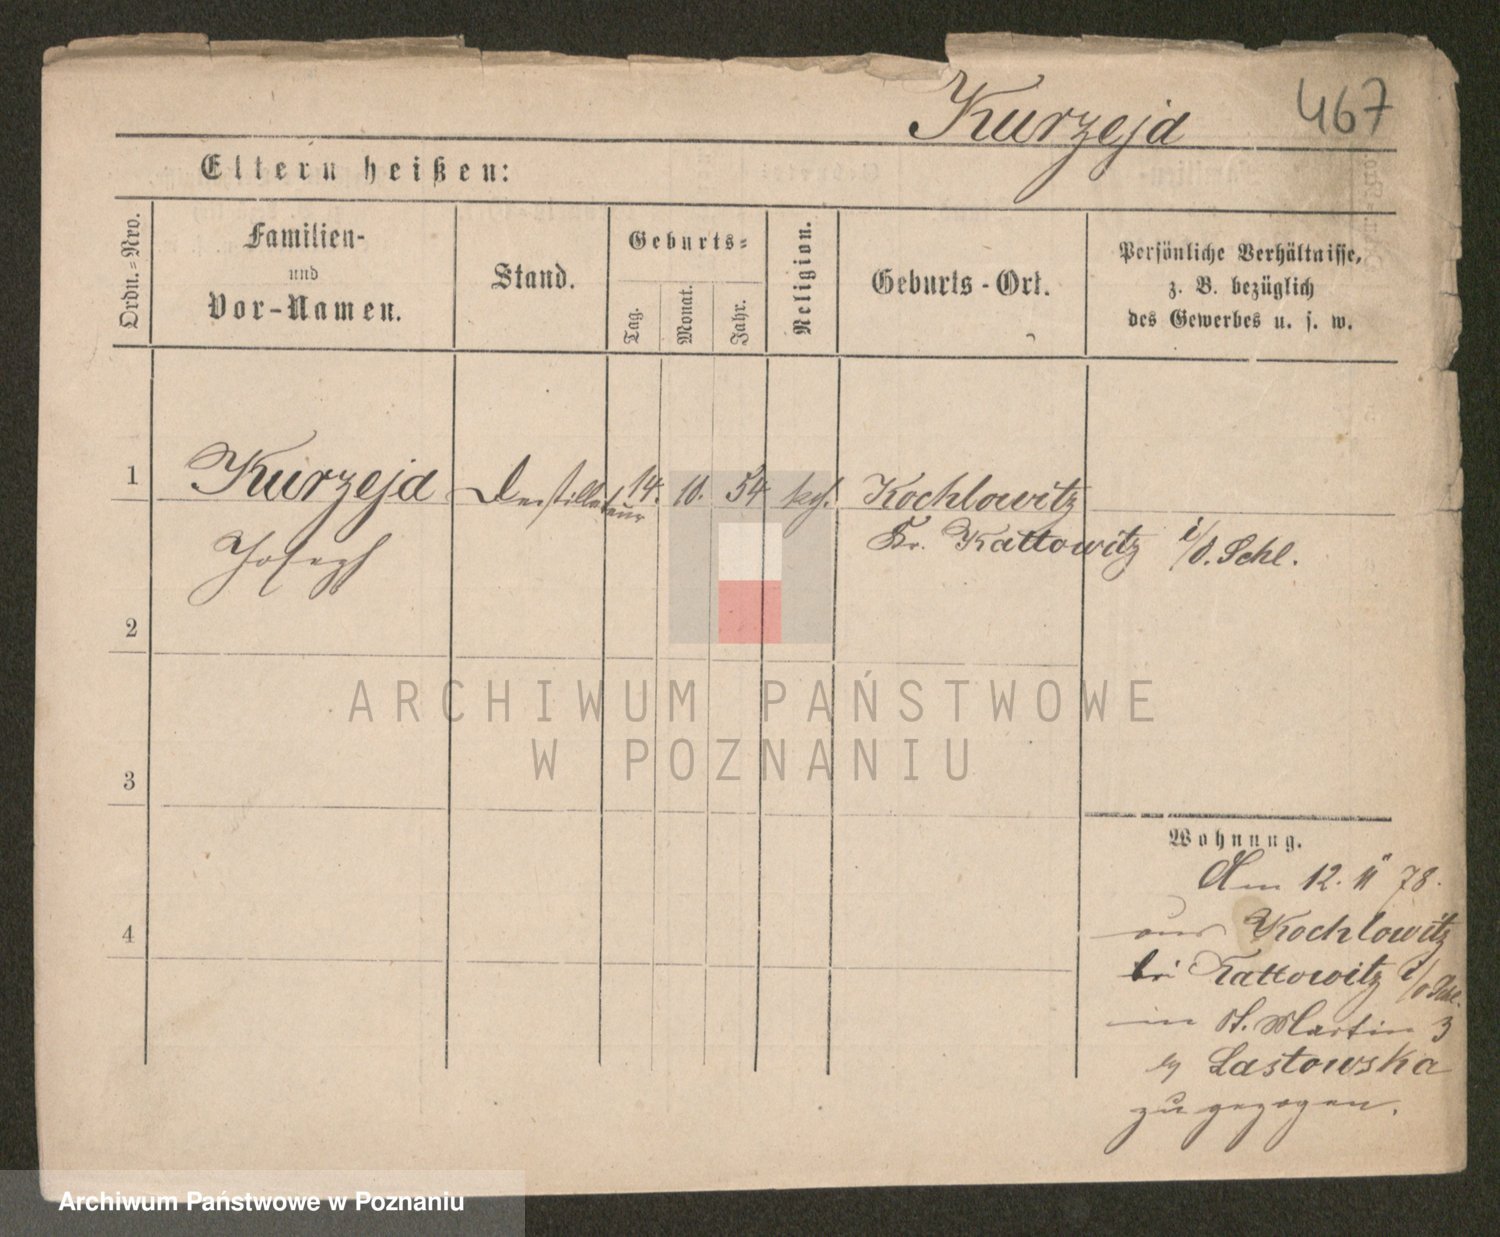 Kurzeja 467
Eltern heißen:
Ordn.=Nro.
Familien-
und
Vor-Namen.
Stand.
Geburts=
Tag.
Monat.
Jahr.
Religion.
Geburts-Ort.
Persönliche Verhältnisse,
z. B. bezüglich
des Gewerbes u. s. w.
1 Kurzeja Destillateur 14. 10. 54 kgl. Kochlowitz
Joseph Kr. Kattowitz i/O. Schl.
2
ARCHIWUM PAŃSTWOWE
W POZNANIU
3
Wohnung.
Am 12. 11 78.
4
aus Kochlowitz
bei Kattowitz i/O Schl.
in St. Martin 3
Lastowska
zugezogen.
Archiwum Państwowe w Poznaniu